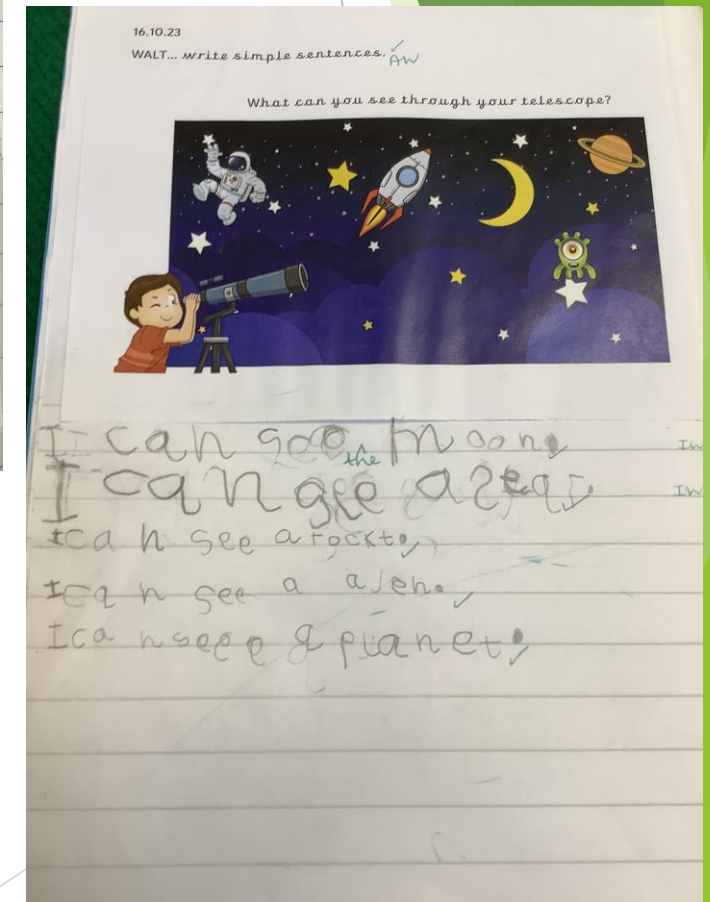 16.10.23
WALT... write simple sentences. AW
What can you see through your telescope?
I can see the moon.
I can see a star.
I can see a rockt.
I can see a alen.
I can seee a planet.